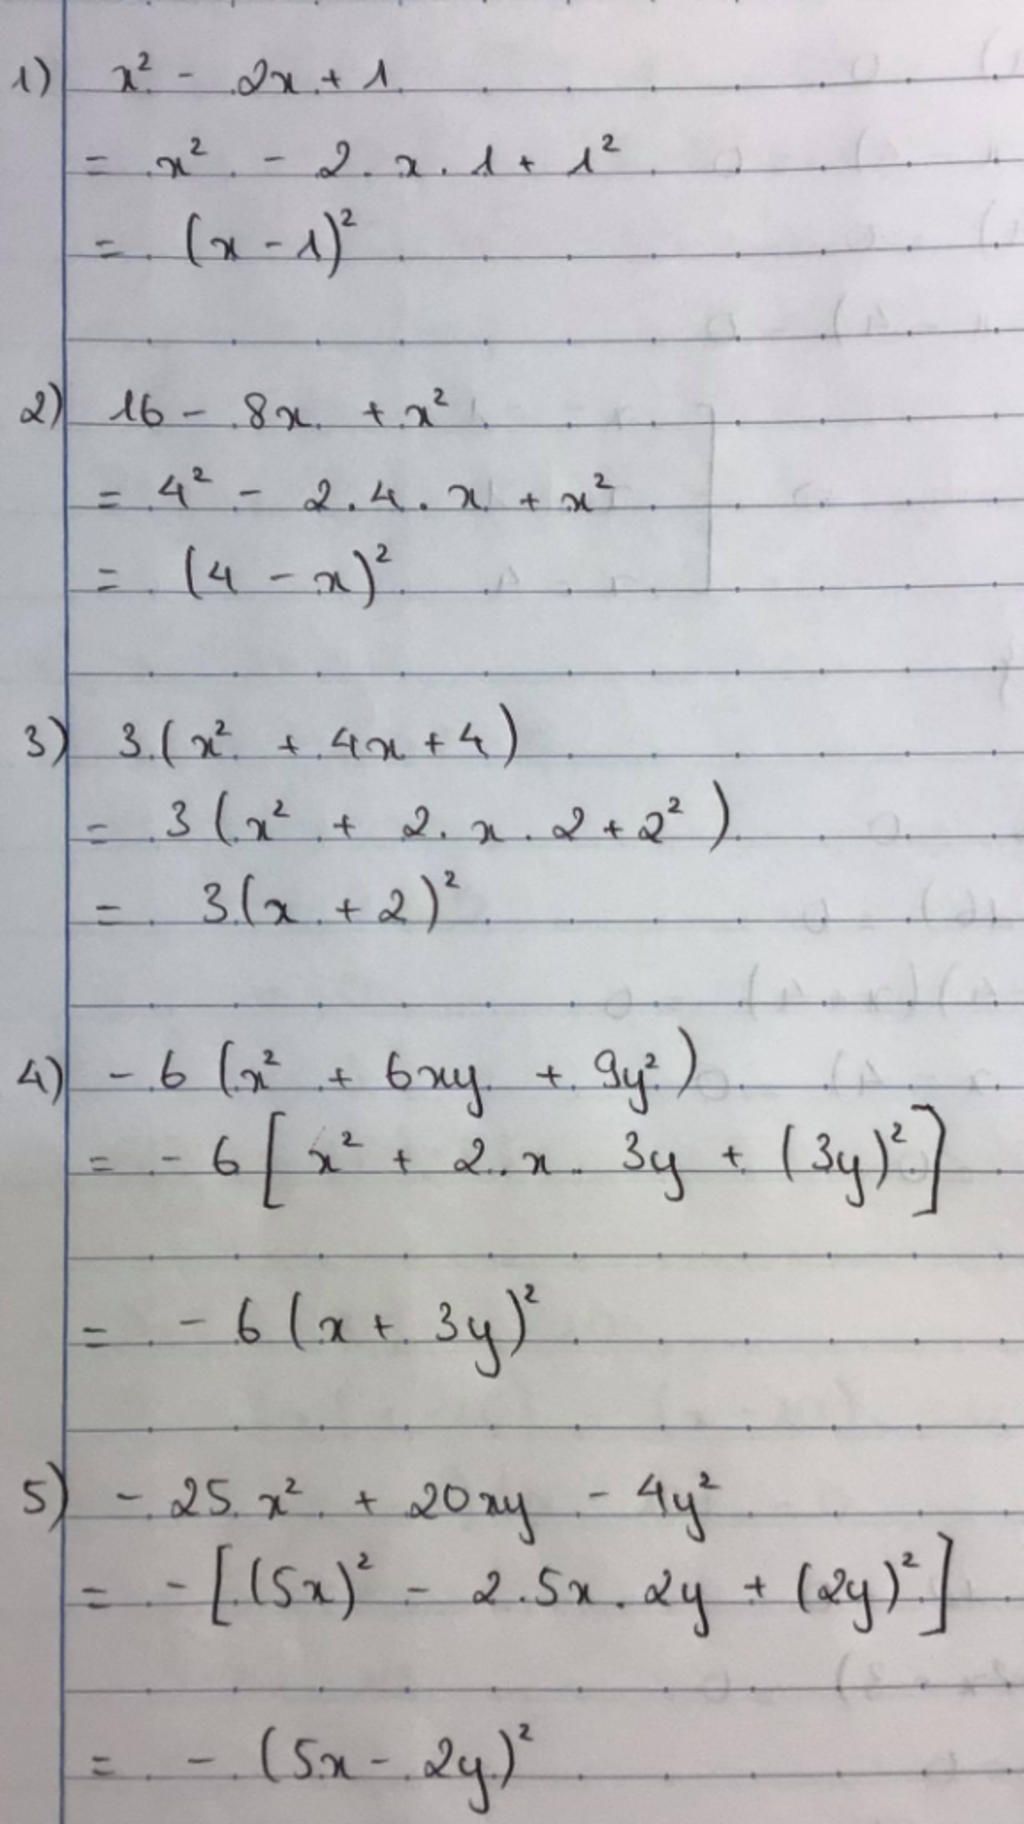 1) x² - 2x + 1
= x² - 2 . x . 1 + 1²
= (x - 1)²
2) 16 - 8x + x²
= 4² - 2 . 4 . x + x²
= (4 - x)²
3) 3 (x² + 4x + 4)
= 3 (x² + 2 . x . 2 + 2²)
= 3 (x + 2)²
4) - 6 (x² + 6xy + 9y²)
= - 6 [ x² + 2 . x . 3y + (3y)² ]
= - 6 (x + 3y)²
5) - 25x² + 20xy - 4y²
= - [ (5x)² - 2 . 5x . 2y + (2y)² ]
= - (5x - 2y)²